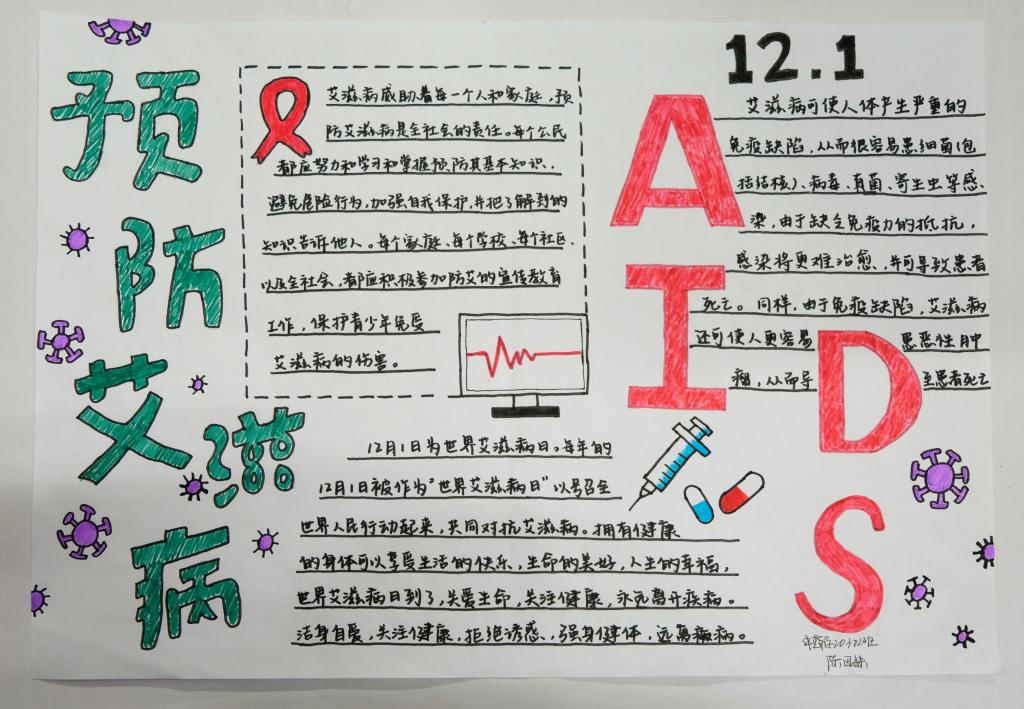 预防艾滋病
艾滋病威胁着每一个人和家庭，预
防艾滋病是全社会的责任。每个公民
都应努力和学习和掌握预防其基本知识、
避免危险行为，加强自我保护，并把了解到的
知识告诉他人。每个家庭、每个学校、每个社区、
以及全社会，都应积极参加防艾的宣传教育
工作，保护青少年免受
艾滋病的伤害。
12月1日为世界艾滋病日。每年的
12月1日被作为“世界艾滋病日”以号召全
世界人民行动起来，共同对抗艾滋病。拥有健康
的身体可以享受生活的快乐，生命的美好，人生的幸福，
世界艾滋病日到了，关爱生命，关注健康，永远离开疾病。
洁身自爱，关注健康，拒绝诱惑，强身健体，远离癫病。
12.1
AIDS
艾滋病可使人体产生严重的
免疫缺陷，从而很容易患细菌（包
括结核）、病毒、真菌、寄生虫等感
染，由于缺乏免疫力的抵抗，
感染将更难治愈、并可导致患者
死亡。同样，由于免疫缺陷，艾滋病
还可使人更容易 患恶性肿
瘤，从而导 至患者死亡